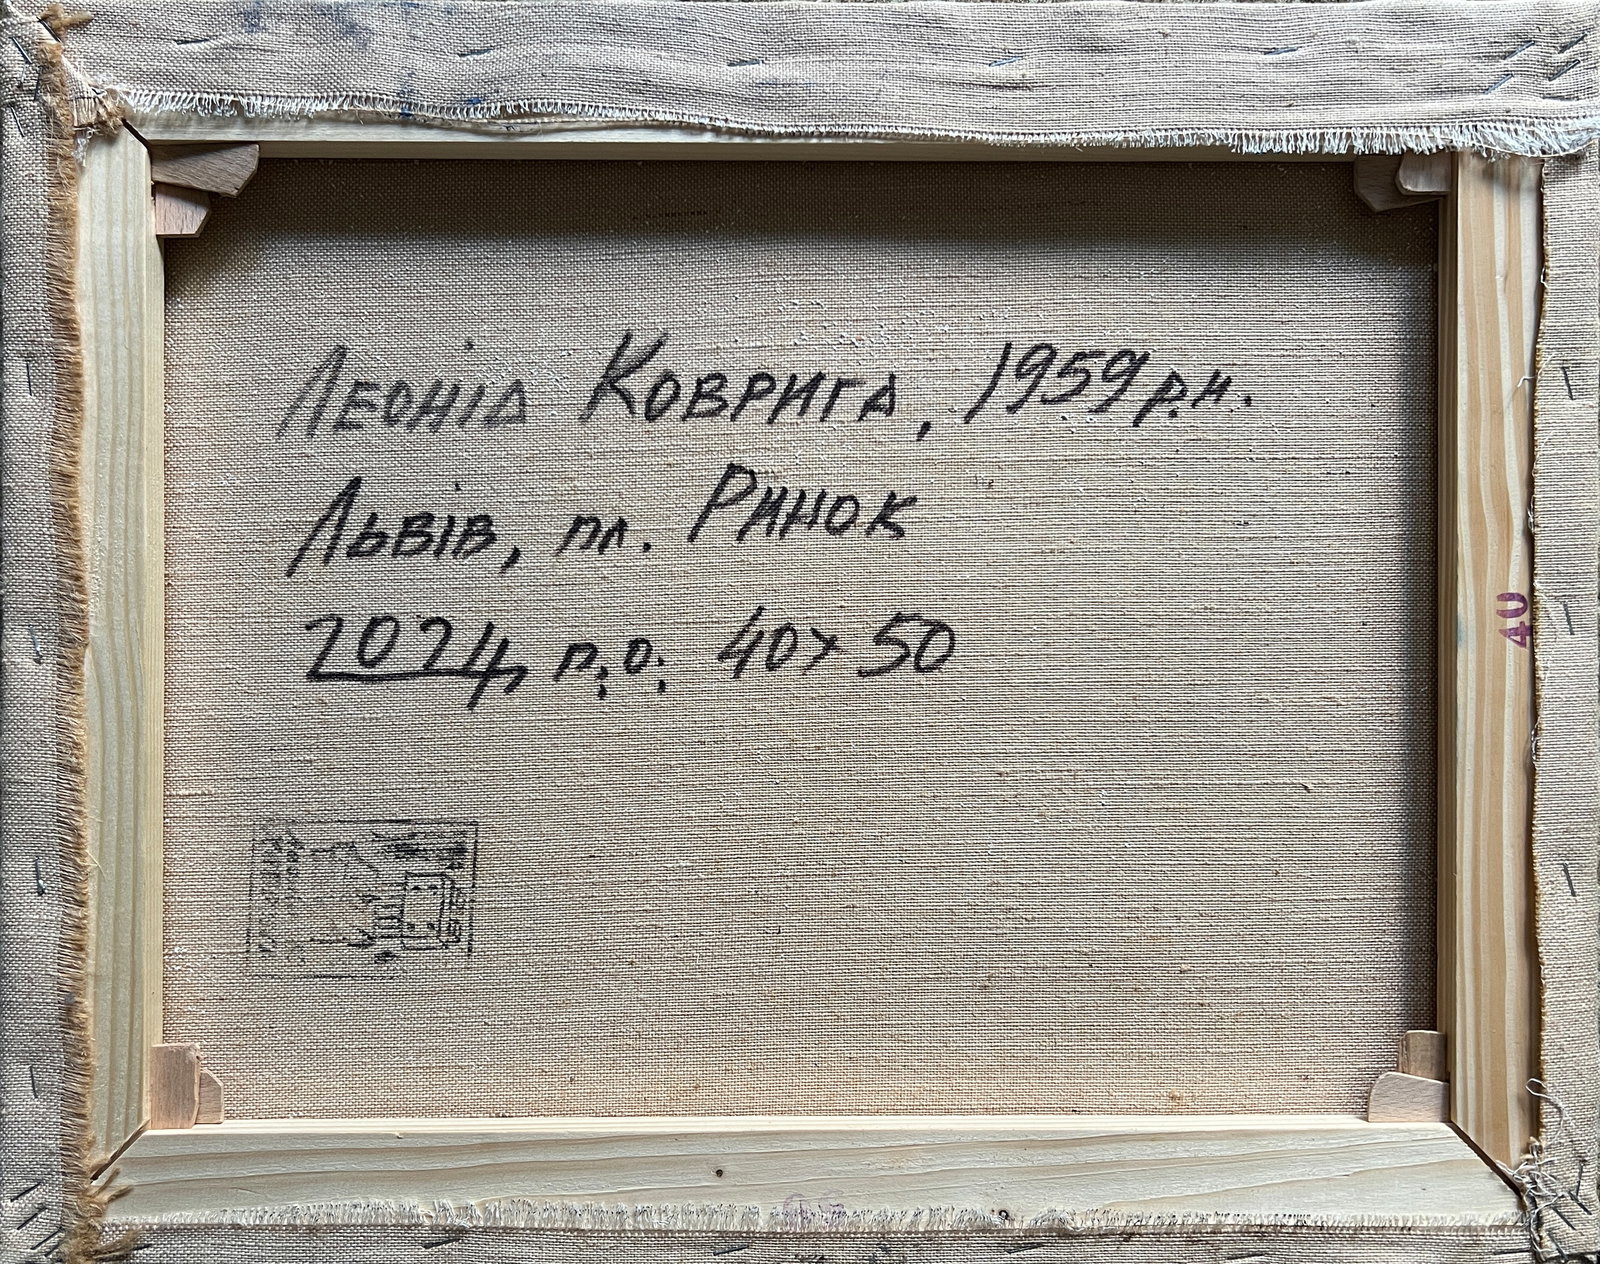 Леонід Коврига, 1959 р.н.
Львів, пл. Ринок
2024, п.о. 40x50
40